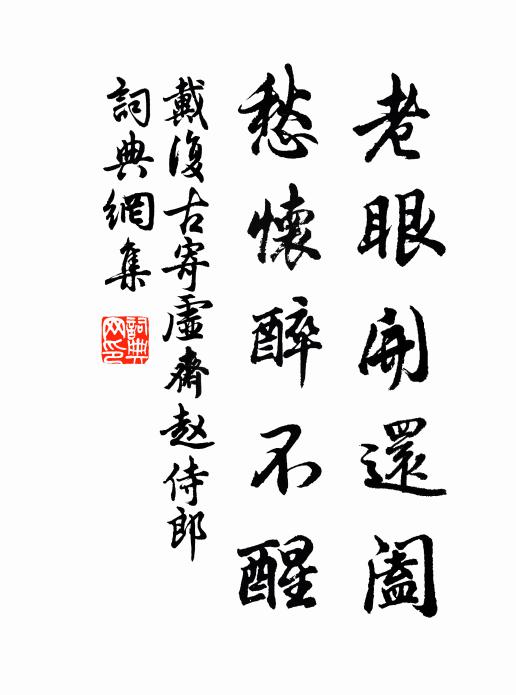 老眼開還闔
愁懷醉不醒
戴復古寄虛齋赵侍郎
詞典網集
詞典网印